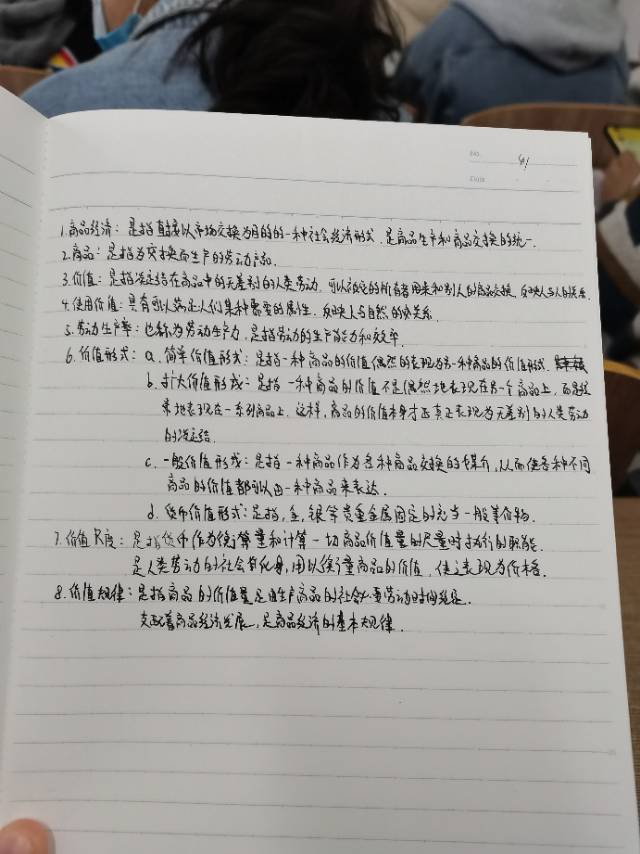 NO.
DATE
1.商品经济：是指直接以市场交换为目的的一种社会经济形式，是商品生产和商品交换的统一.
2.商品：是指为交换而生产的劳动产品.
3.价值：是指凝结在商品中的无差别的人类劳动，可以的所有者用来和别人的商品交换，反映人与人的关系.
4.使用价值：具有可以满足人们某种需要的属性，反映人与自然的关系.
5.劳动生产率：也称为劳动生产力，是指劳动的生产能力和效率.
6.价值形式：a.简单价值形式：是指一种商品的价值偶然的表现为另一种商品的价值形式.
b.扩大价值形式：是指一种商品的价值不是偶然地表现在另一个商品上，而是经
常地表现在一系列商品上.这样，商品的价值本身才真正表现为无差别的人类劳动
的凝结.
c.一般价值形式：是指一种商品作为各种商品交换的媒介，从而使各种不同
商品的价值都可以由一种商品来表达.
d.货币价值形式：是指，金，银等贵重金属固定的充当一般等价物.
7.价值尺度：是指货币作为衡量和计算一切商品价值量的尺量时执行的职能.
是人类劳动的社会化身，用以衡量商品的价值，使之表现为价格.
8.价值规律：是指商品的价值量是由生产商品的社会必要劳动时间决定.
支配着商品经济发展，是商品经济的基本规律.